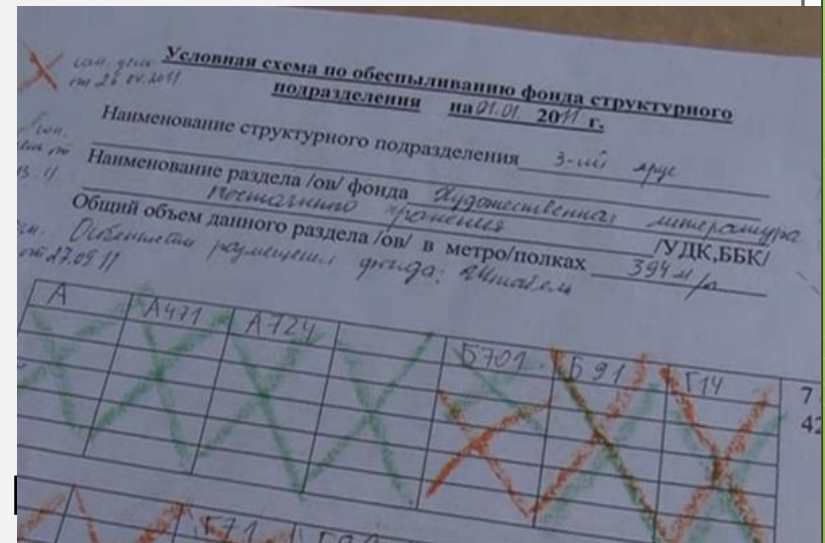 сан. день
Условная схема по обеспыливанию фонда структурного
от 26.04.2011
подразделения на 01.01. 2011 г.
Наименование структурного подразделения 3-ий ярус
Наименование раздела /ов/ фонда Художественная литература
постоянного хранения /УДК,ББК/
Общий объем данного раздела /ов/ в метро/полках 394 м/п
Особенности размещения фонда:
от 27.09 11
А А471 А724 Б701 Б91 Г14
7
42
Г71